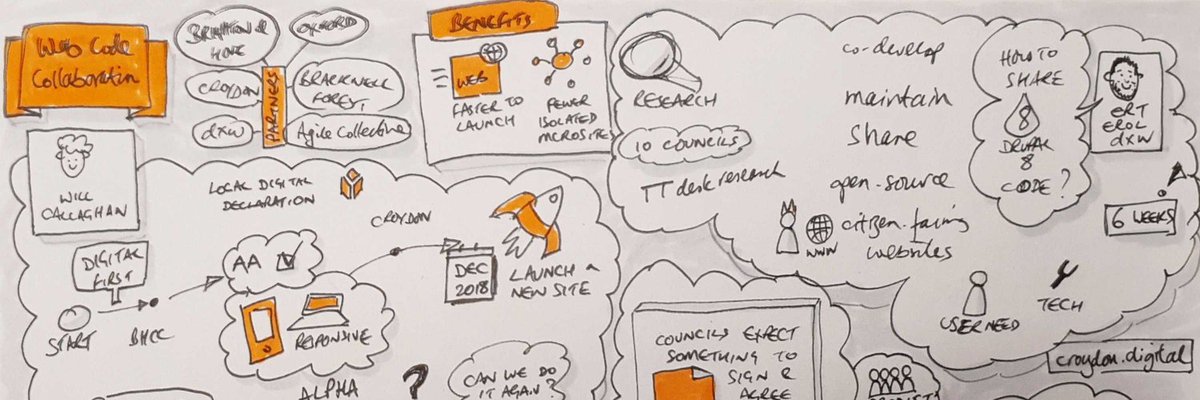 Web Code
Collaboration
BRIGHTON &
HOVE
OXFORD
CROYDON
BRACKNELL
FOREST
dxw
Agile Collective
PARTNERS
BENEFITS
WEB
FASTER TO
LAUNCH
FEWER
ISOLATED
MICROSITES
RESEARCH
10 COUNCILS
desk research
co-develop
maintain
share
open-source
citizen-facing
websites
WWW
HOW TO
SHARE
8
DRUPAL
8
CODE?
ERT
EROL
dxw
6 WEEKS
USER NEED
TECH
croydon.digital
WILL
CALLAGHAN
LOCAL DIGITAL
DECLARATION
CROYDON
DIGITAL
FIRST
START
BHCC
AA
RESPONSIVE
ALPHA
DEC
2018
LAUNCH A
NEW SITE
?
CAN WE DO
IT AGAIN?
COUNCILS EXPECT
SOMETHING TO
SIGN &
AGREE